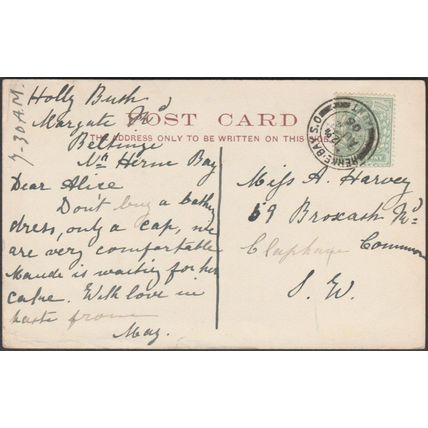 7-30 A.M.
Holly Bush
Margate Rd
POST CARD
THE ADDRESS ONLY TO BE WRITTEN ON THIS SIDE
Beltinge
Nr Herne Bay
Dear Alice
Don't buy a bathg
dress, only a cap, we
are very comfortable
Maude is waiting for her
cake. With love in
haste from
May.
HERNE-BAY.S.O
Miss A. Harvey
59 Broxash Rd
Clapham Common
S. W.